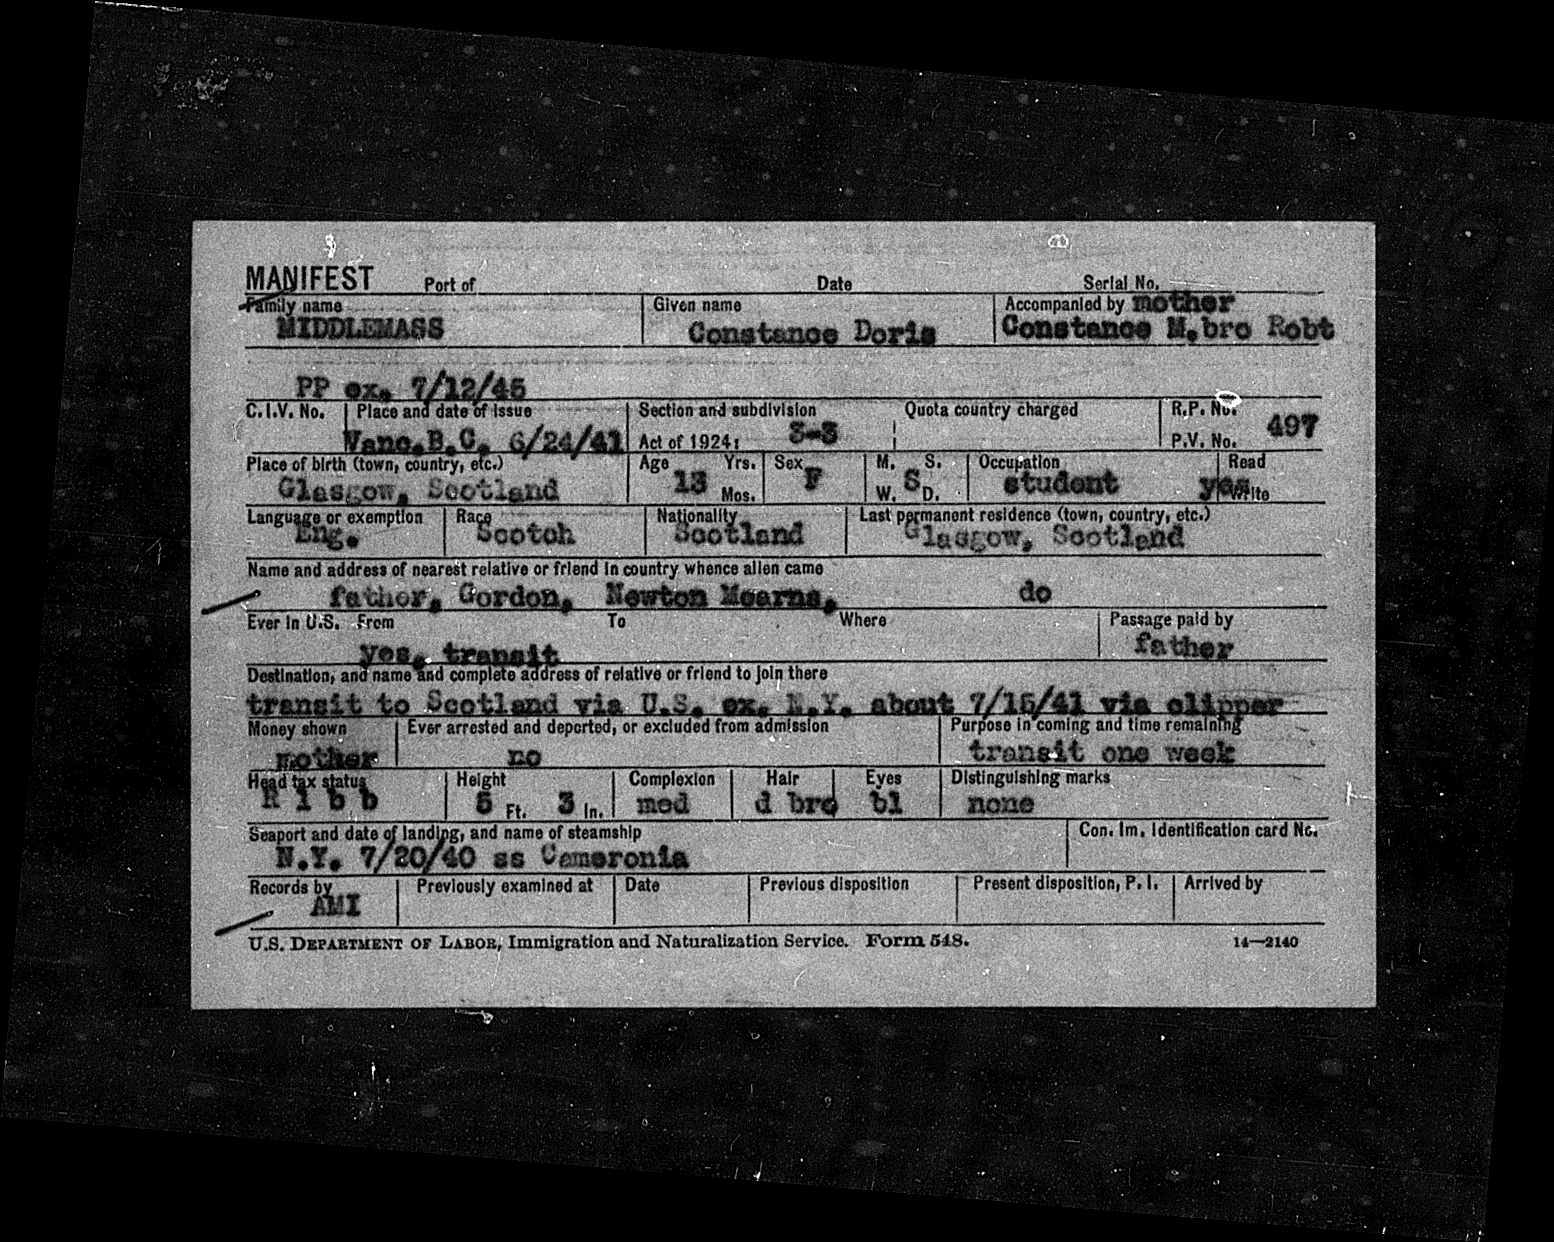 MANIFEST Port of Date Serial No.
Family name Given name Accompanied by mother
MIDDLEMASS Constance Doris Constance M.bro Robt
PP ex. 7/12/45
C.I.V. No. Place and date of issue Section and subdivision Quota country charged R.P. No.
Vanc.B.C. 6/24/41 Act of 1924: 3-3 P.V. No. 497
Place of birth (town, country, etc.) Age Yrs. Sex M. S. Occupation Read
Glasgow, Scotland 13 Mos. F W. S D. student yes Write
Language or exemption Race Nationality Last permanent residence (town, country, etc.)
Eng. Scotch Scotland Glasgow, Scotland
Name and address of nearest relative or friend in country whence alien came
father, Gordon, Newton Mearns, do
Ever in U.S. From To Where Passage paid by
yes, transit father
Destination, and name and complete address of relative or friend to join there
transit to Scotland via U.S. ex. N.Y. about 7/15/41 via clipper
Money shown Ever arrested and deported, or excluded from admission Purpose in coming and time remaining
mother no transit one week
Head tax status Height Complexion Hair Eyes Distinguishing marks
R 1 b b 5 Ft. 3 In. med d bro bl none
Seaport and date of landing, and name of steamship Con. Im. Identification card No.
N.Y. 7/20/40 ss Cameronia
Records by Previously examined at Date Previous disposition Present disposition, P.I. Arrived by
AMI
U.S. DEPARTMENT OF LABOR, Immigration and Naturalization Service. Form 548. 14—2140